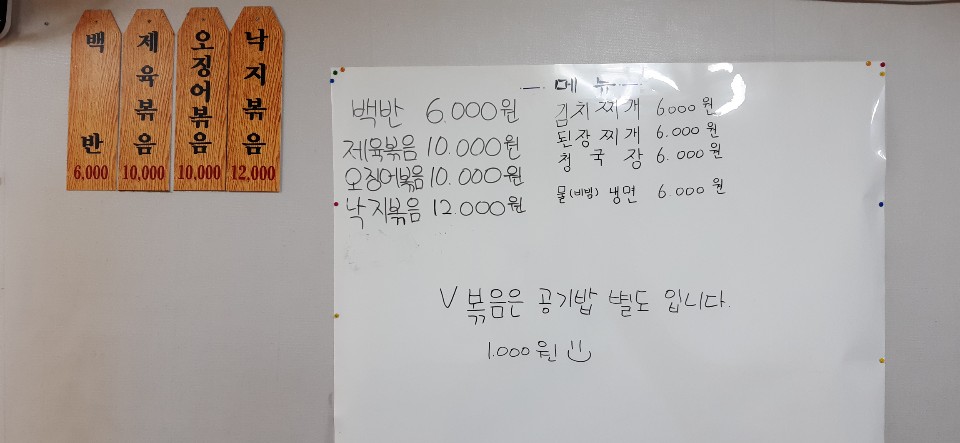 백반
6,000
제육볶음
10,000
오징어볶음
10,000
낙지볶음
12,000
메뉴
백반 6.000원
제육볶음 10.000원
오징어볶음 10.000원
낙지볶음 12.000원
김치찌개 6000원
된장찌개 6.000원
청국장 6.000원
물(비빔) 냉면 6.000원
V 볶음은 공기밥 별도 입니다.
1.000원